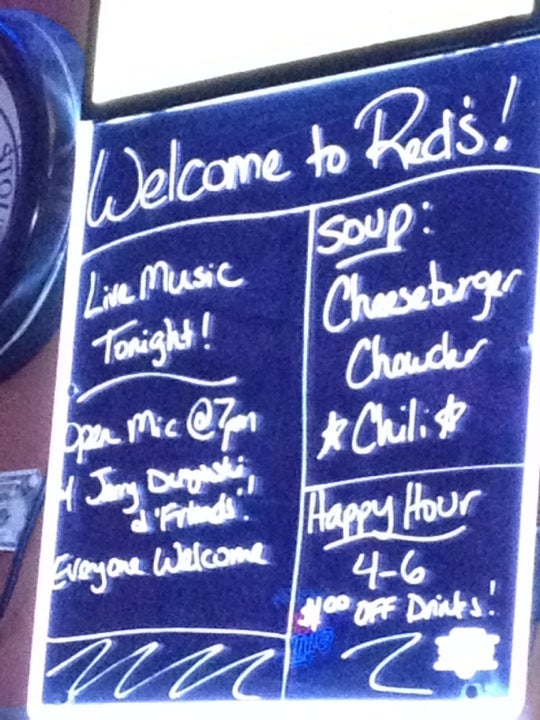 Welcome to Red's!
Live Music
Tonight!
Open Mic @ 7pm
Jerry
& 'Friends'!
Everyone Welcome
Soup:
Cheeseburger
Chowder
☆ Chili ☆
Happy Hour
4-6
$1.00 OFF Drinks!